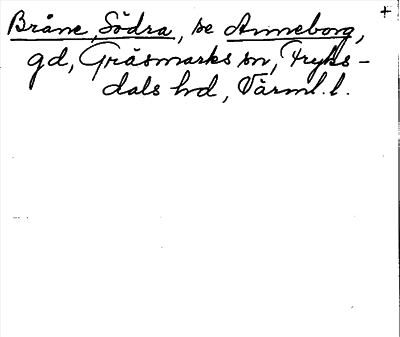 Bråne, Södra, se Anneborg, +
gd, Gräsmarks sn, Fryks-
dals hd, Värml. l.